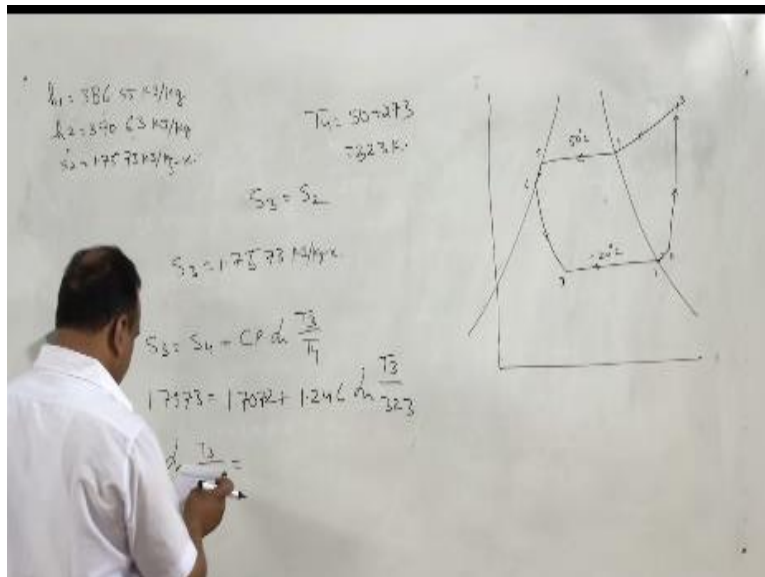 h1 = 386.55 KJ/Kg
h2 = 390.63 KJ/Kg
s2 = 1.7573 KJ/Kg-K.
T4 = 50+273
= 323 K.
S3 = S2
S3 = 1.7573 KJ/Kg-K.
S3 = S4 + CP ln T3/T4
1.7573 = 1.7072 + 1.246 ln T3/323
ln T3 =
T
3
50°C
5
4
6
-20°C
7
1
2